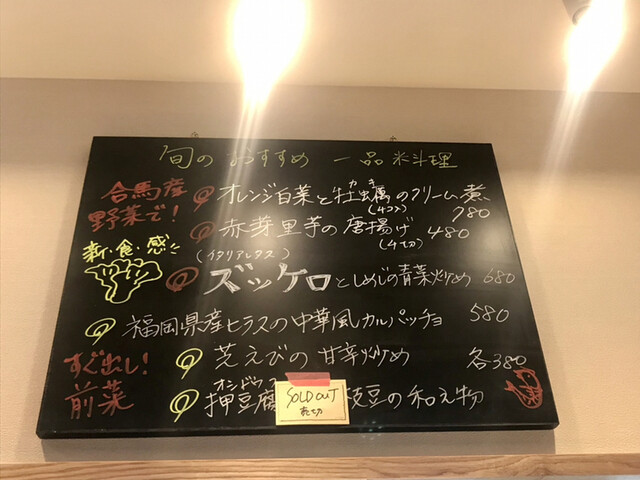 旬のおすすめ 一品料理
合馬産
野菜で!
オレンジ白菜と牡蠣のクリーム煮
カキ
(4コ入)
780
赤芽里芋の唐揚げ
(4切)
480
新・食・感
(イタリアレタス)
ズッケロとしめじの青菜炒め 680
福岡県産ヒラスの中華風カルパッチョ 580
すぐ出し!
前菜
芝えびの甘辛炒め 各380
オシドウフ
押豆腐
枝豆の和え物
SOLD OUT
売切